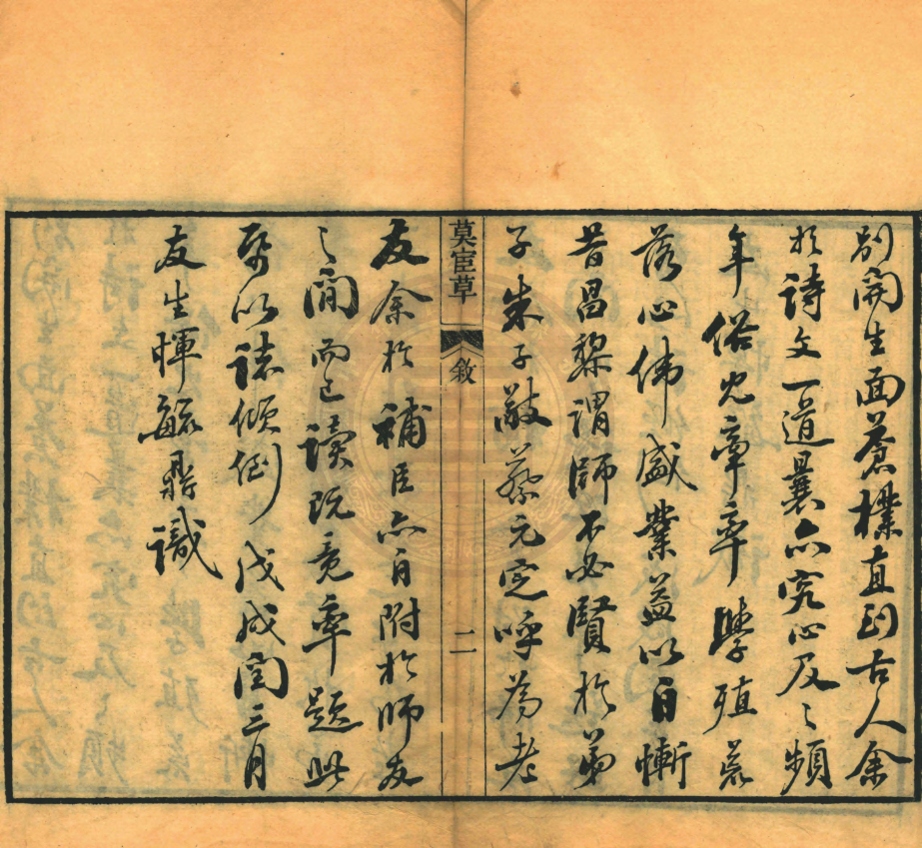 别開生面蒼樸直到古人余
於詩文一道曩亦究心及之頻
年俗冗牽率學殖荒
落心偉盛業益以自慚
昔昌黎謂師不必賢於弟
子朱子敬蔡元定呼為老
莫宦草 敘 二
友余於補臣亦自附於師友
之間而已讀既竟率題此
聊以誌傾倒戊戌閏三月
友生惲毓鼎識